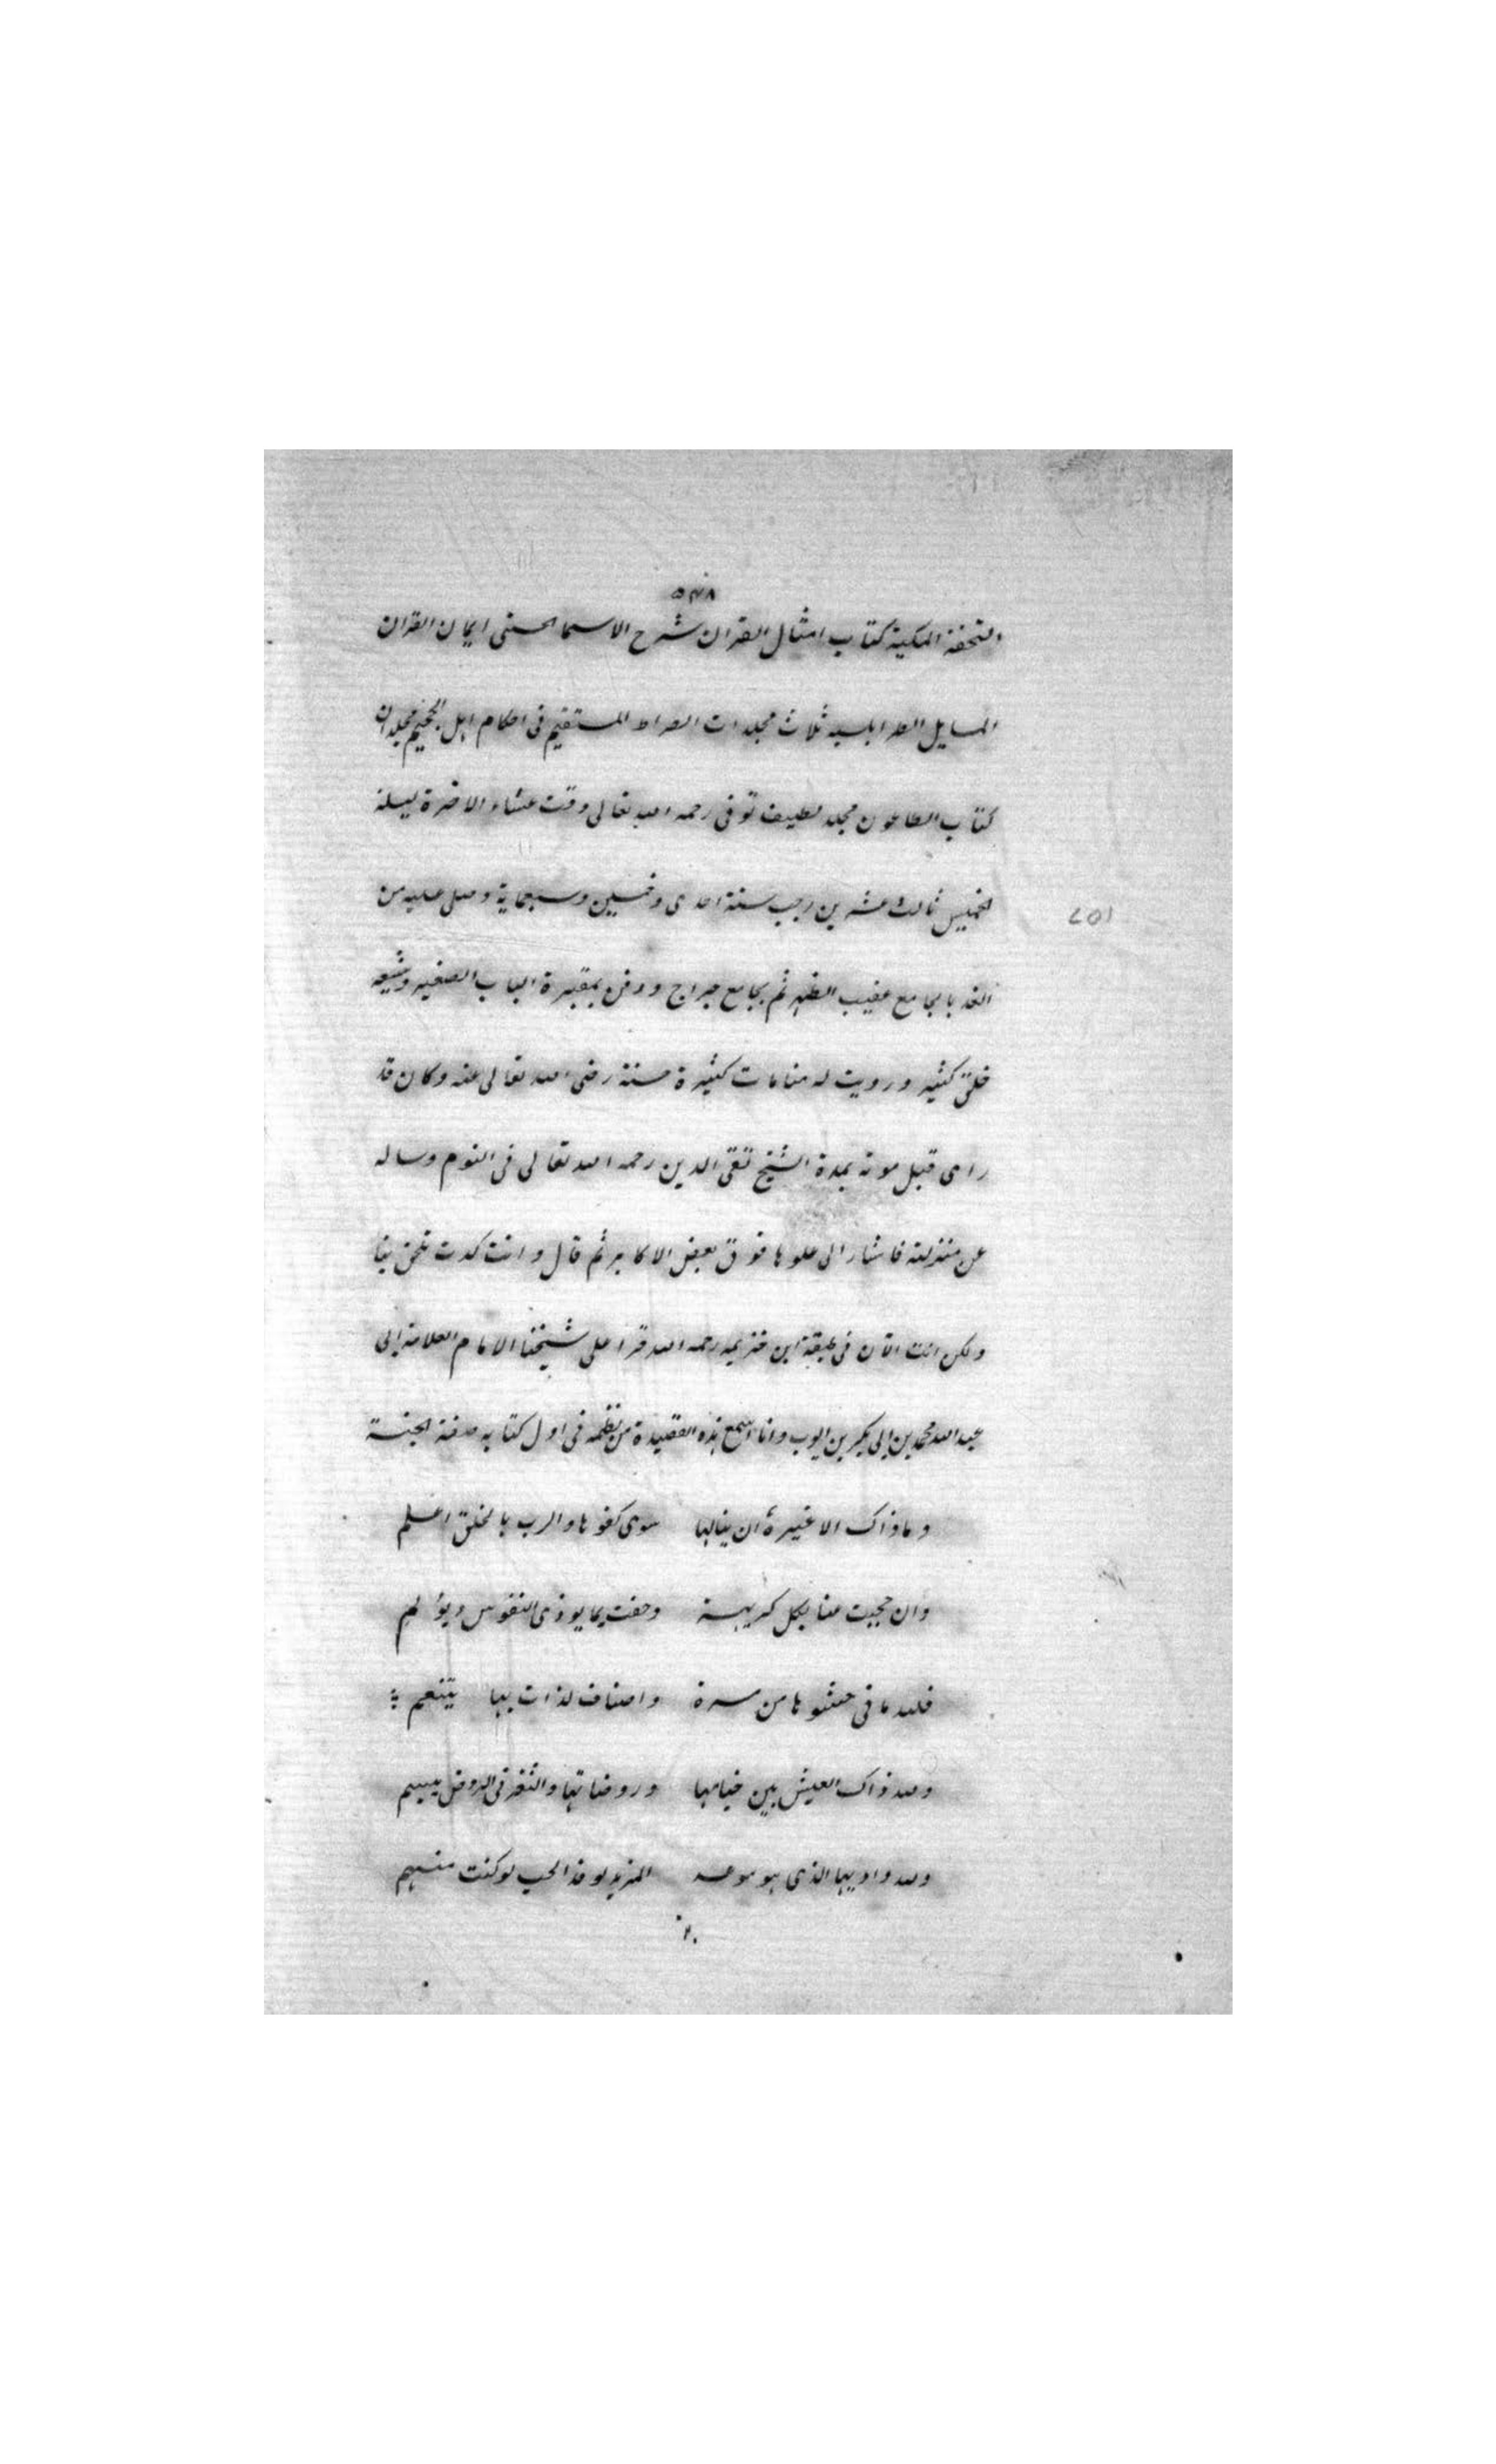 ٥٣٨
التحفة المكية كتاب امثال القران شرح الاسما الحسنى ايمان القران
المسايل الطرابلسيه ثلاث مجلدات الصراط المستقيم فى احكام اهل الجحيم مجلدان
كتاب الطاعون مجلد لطيف توفى رحمه الله تعالى وقت عشاء الاخرة ليلة
الخميس ثالث عشرين رجب سنة احدى وخمسين وسبعماية وصلى عليه من
٧٥١
الغد بالجامع عقيب الظهر ثم بجامع جراح ودفن بمقبرة الباب الصغير وشيعه
خلق كثير ورويت له منامات كثيرة حسنة رضى الله تعالى عنه وكان قد
راى قبل موته بمدة الشيخ تقى الدين رحمه الله تعالى فى النوم وساله
عن منزلته فاشار الى علوها فوق بعض الاكابر ثم قال وانت كدت تلحق بنا
ولكن انت الآن فى طبقة ابن خزيمه رحمه الله قرا على شيخنا الامام العلامة ابى
عبد الله محمد بن ابى بكر بن ايوب وانا اسمع هذه القصيدة من نظمه فى اول كتابه صفة الجنة
وماذاك الا غيرة ان ينالها سوى كفوها والرب بالخلق اعلم
وان حجبت عنا بكل كريهة وحفت بما يوذى النفوس ويؤلم
فلله ما فى حشوها من مسرة واصناف لذات بها يتنعم
ولله ذاك العيش بين خيامها وروضاتها والثغر فى الروض يبسم
ولله واديها الذى هو موعد المزيد لوفد الحب لو كنت منهم